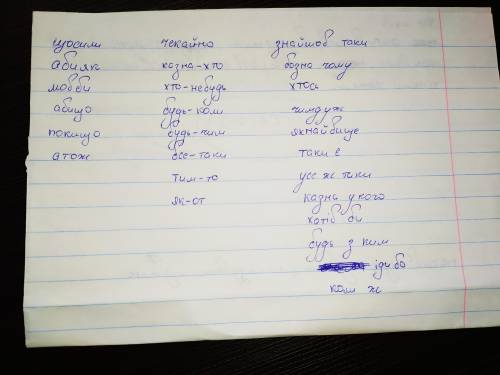 щосили
абияк
мовби
абищо
покищо
атож
чекайно
казна-хто
хто-небудь
будь-коли
будь-чим
все-таки
тим-то
як-от
знайшов таки
бозна чому
хтось
чимдуж
якнайвище
таки є
усе ж таки
казна у кого
хотів би
будь з ким
іди бо
коли ж